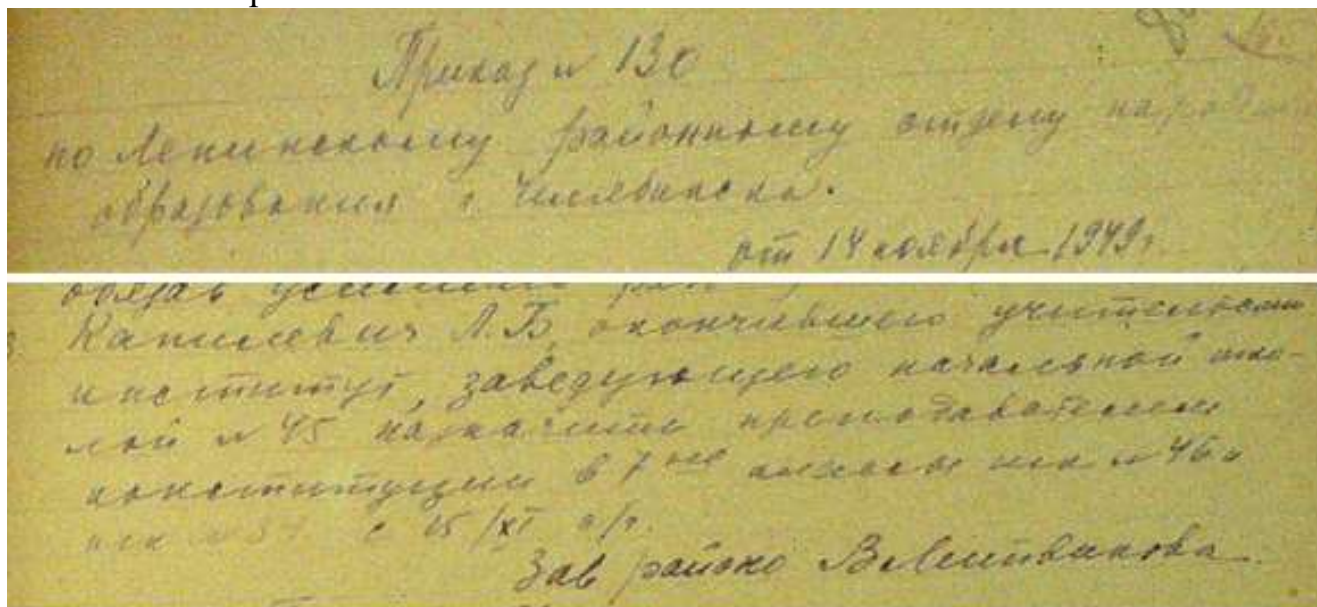 Приказ № 130
по Ленинскому районному отделу народного
образования г. Челябинска.
от 14 ноября 1949г.
обязав
Капилевич Л.Б, окончившего учительский
институт, заведующего начальной шко-
лой № 45 назначить преподавателем
конституции в 7ые классы шк № 46 и
шк № с 15/XI с/г.
Зав районо